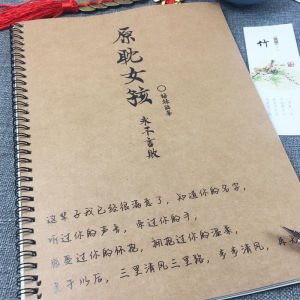 原耽女孩
永不言败
这辈子我已经很满意了，知道你的名字，
听过你的声音，牵过你的手，
感受过你的怀抱，拥抱过你的温柔，
至于以后，三里清风三里路，步步清风
竹